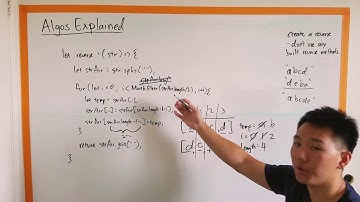 Algos Explained
create a reverse
- don't use any
built reverse methods
let reverse = (str) => {
let strArr = str.split('');
strArr.length
for (let i=0, i < Math.floor(strArr.length/2), i++){
let temp = strArr[i];
strArr[i] = strArr[strArr.length-1-i];
strArr[strArr.length-1-i] = temp;
}
return strArr.join('');
}
"abcd"
"abcde"
1 2 3
c, d]
[d, c,
temp =
i = 0 1 2
length = 4